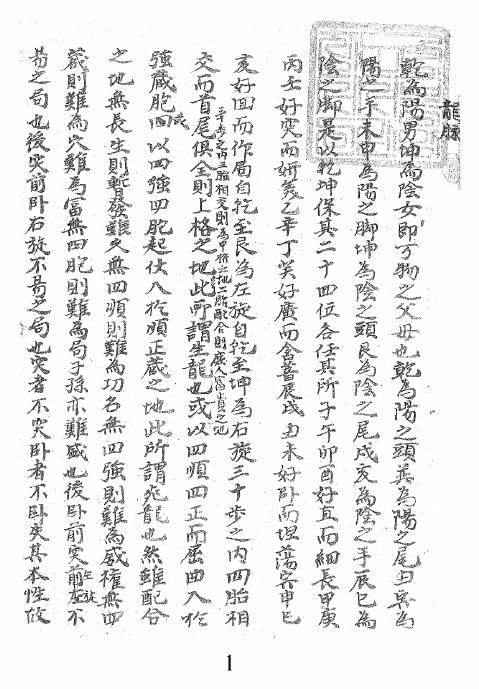 龍脉
乾為陽男坤為陰女卽万物之父母也乾為陽之頭巽為陽之尾丑寅為
陽之手未申為陽之脚坤為陰之頭艮為陰之尾戌亥為陰之手辰巳為
陰之脚是以乾坤保其二十四位各任其所子午卯酉好直而細長甲庚
丙壬好突而妍美乙辛丁癸好廣而含蓄辰戌丑未好卧而坦蕩寅申巳
亥好回而作局自乾至艮為左旋自乾至坤為右旋三十步之內四胎相
交而首尾俱全則上格之地此所謂生龍也或以四順四正而屈曲入於
三十步之内三胎相交則為中格之地二胎配合則庶人富貴之地
強藏胞四或以四強四胞起伏入於順正藏之地此所謂死龍也然雖配合
之地無長生則暫發難久無四順則難為功名無四強則難為威權無四
藏則難為穴難為富無四胞則難為局子孫亦難盛也後卧前突前左旋不
昜之局也後突前卧右旋不昜之局也突者不突卧者不卧失其本性故
1